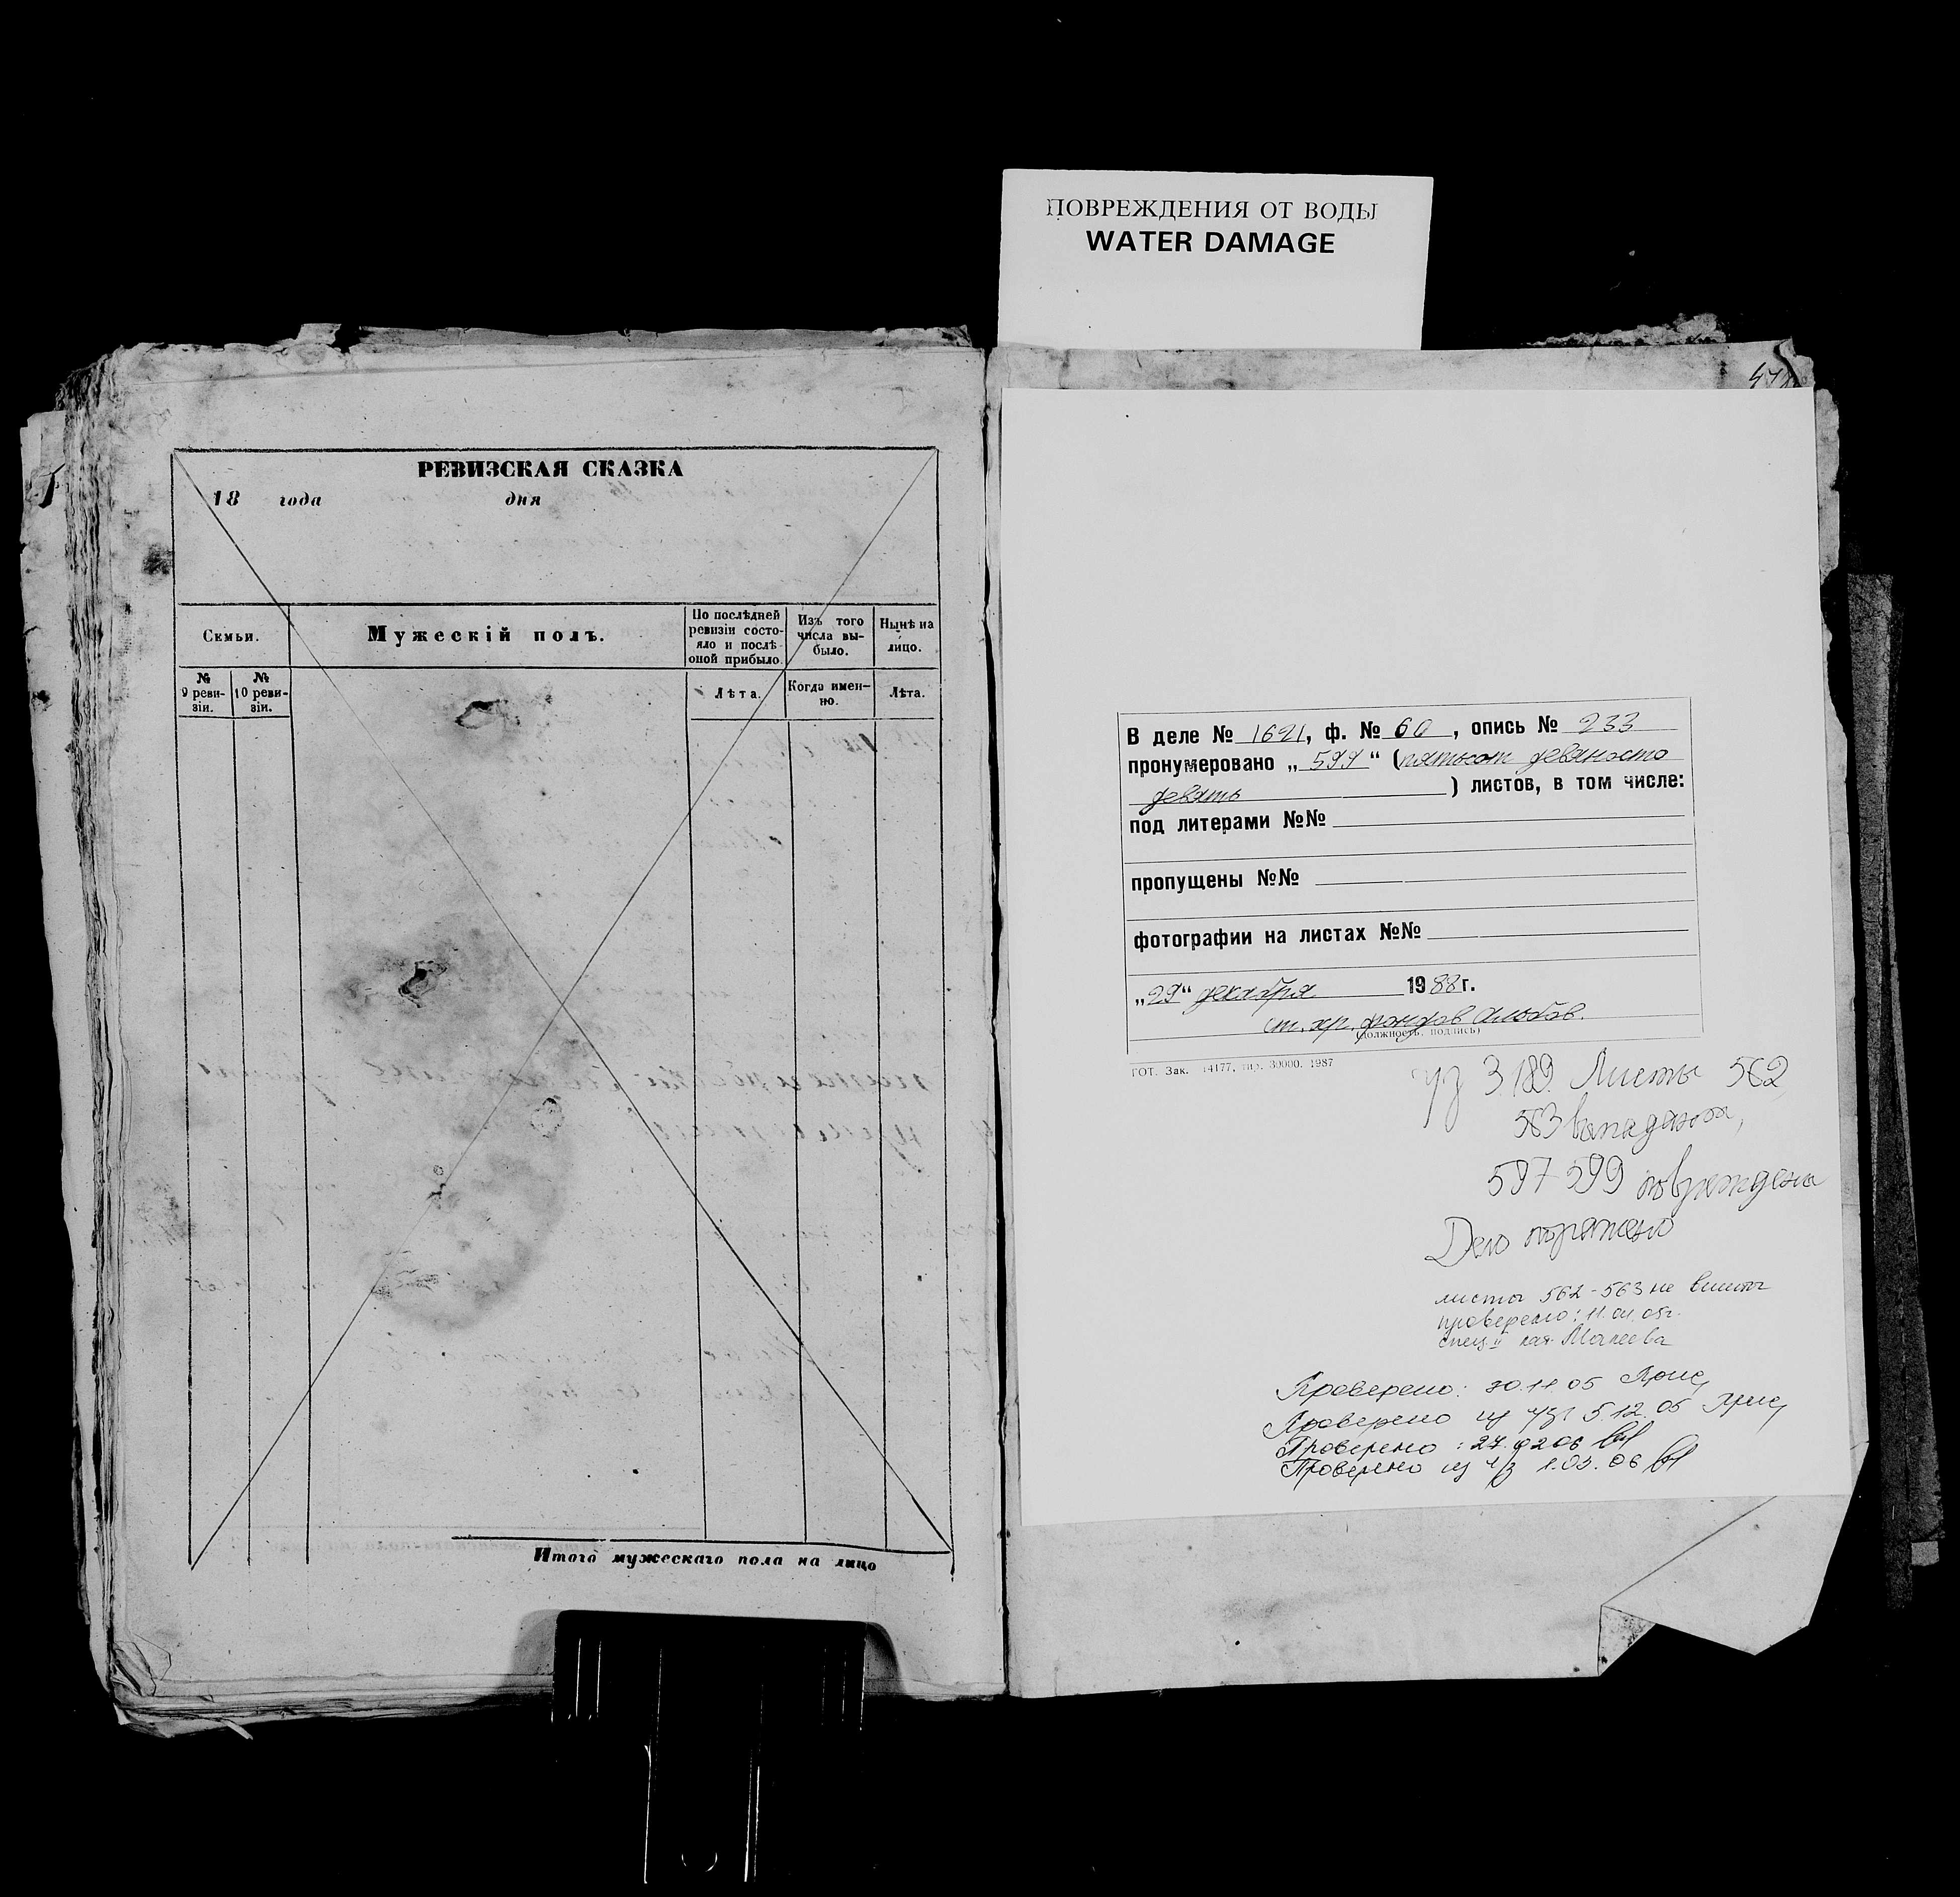 ПОВРЕЖДЕНИЯ ОТ ВОДЫ
WATER DAMAGE
РЕВИЗСКАЯ СКАЗКА
18 года дня
Семьи.
Мужескій полъ.
По послѣдней
ревизіи состо-
яло и послѣ
оной прибыло.
Изъ того
числа вы-
было.
Нынѣ на
лицо.
№
9 реви-
зіи.
№
10 реви-
зіи.
Лѣта.
Когда имен-
но.
Лѣта.
Итого мужескаго пола на лицо
В деле № 1621, ф. № 60, опись № 233
пронумеровано „599“ (пятьсот девяносто
девять) листов, в том числе:
под литерами №№
пропущены №№
фотографии на листах №№
„29“ декабря 1988г.
ст. хр. фондов
(должность, подпись)
ГОТ. Зак. 14177, тир. 30000. 1987
Листы 562
563
597 599 повреждены
Дело
листы 562-563 не вшиты
проверено: 11.01.05г.
Проверено: 30.11.05
Проверено из ч/з 5.12.05
Проверено: 27.02.06
Проверено из ч/з 1.03.06